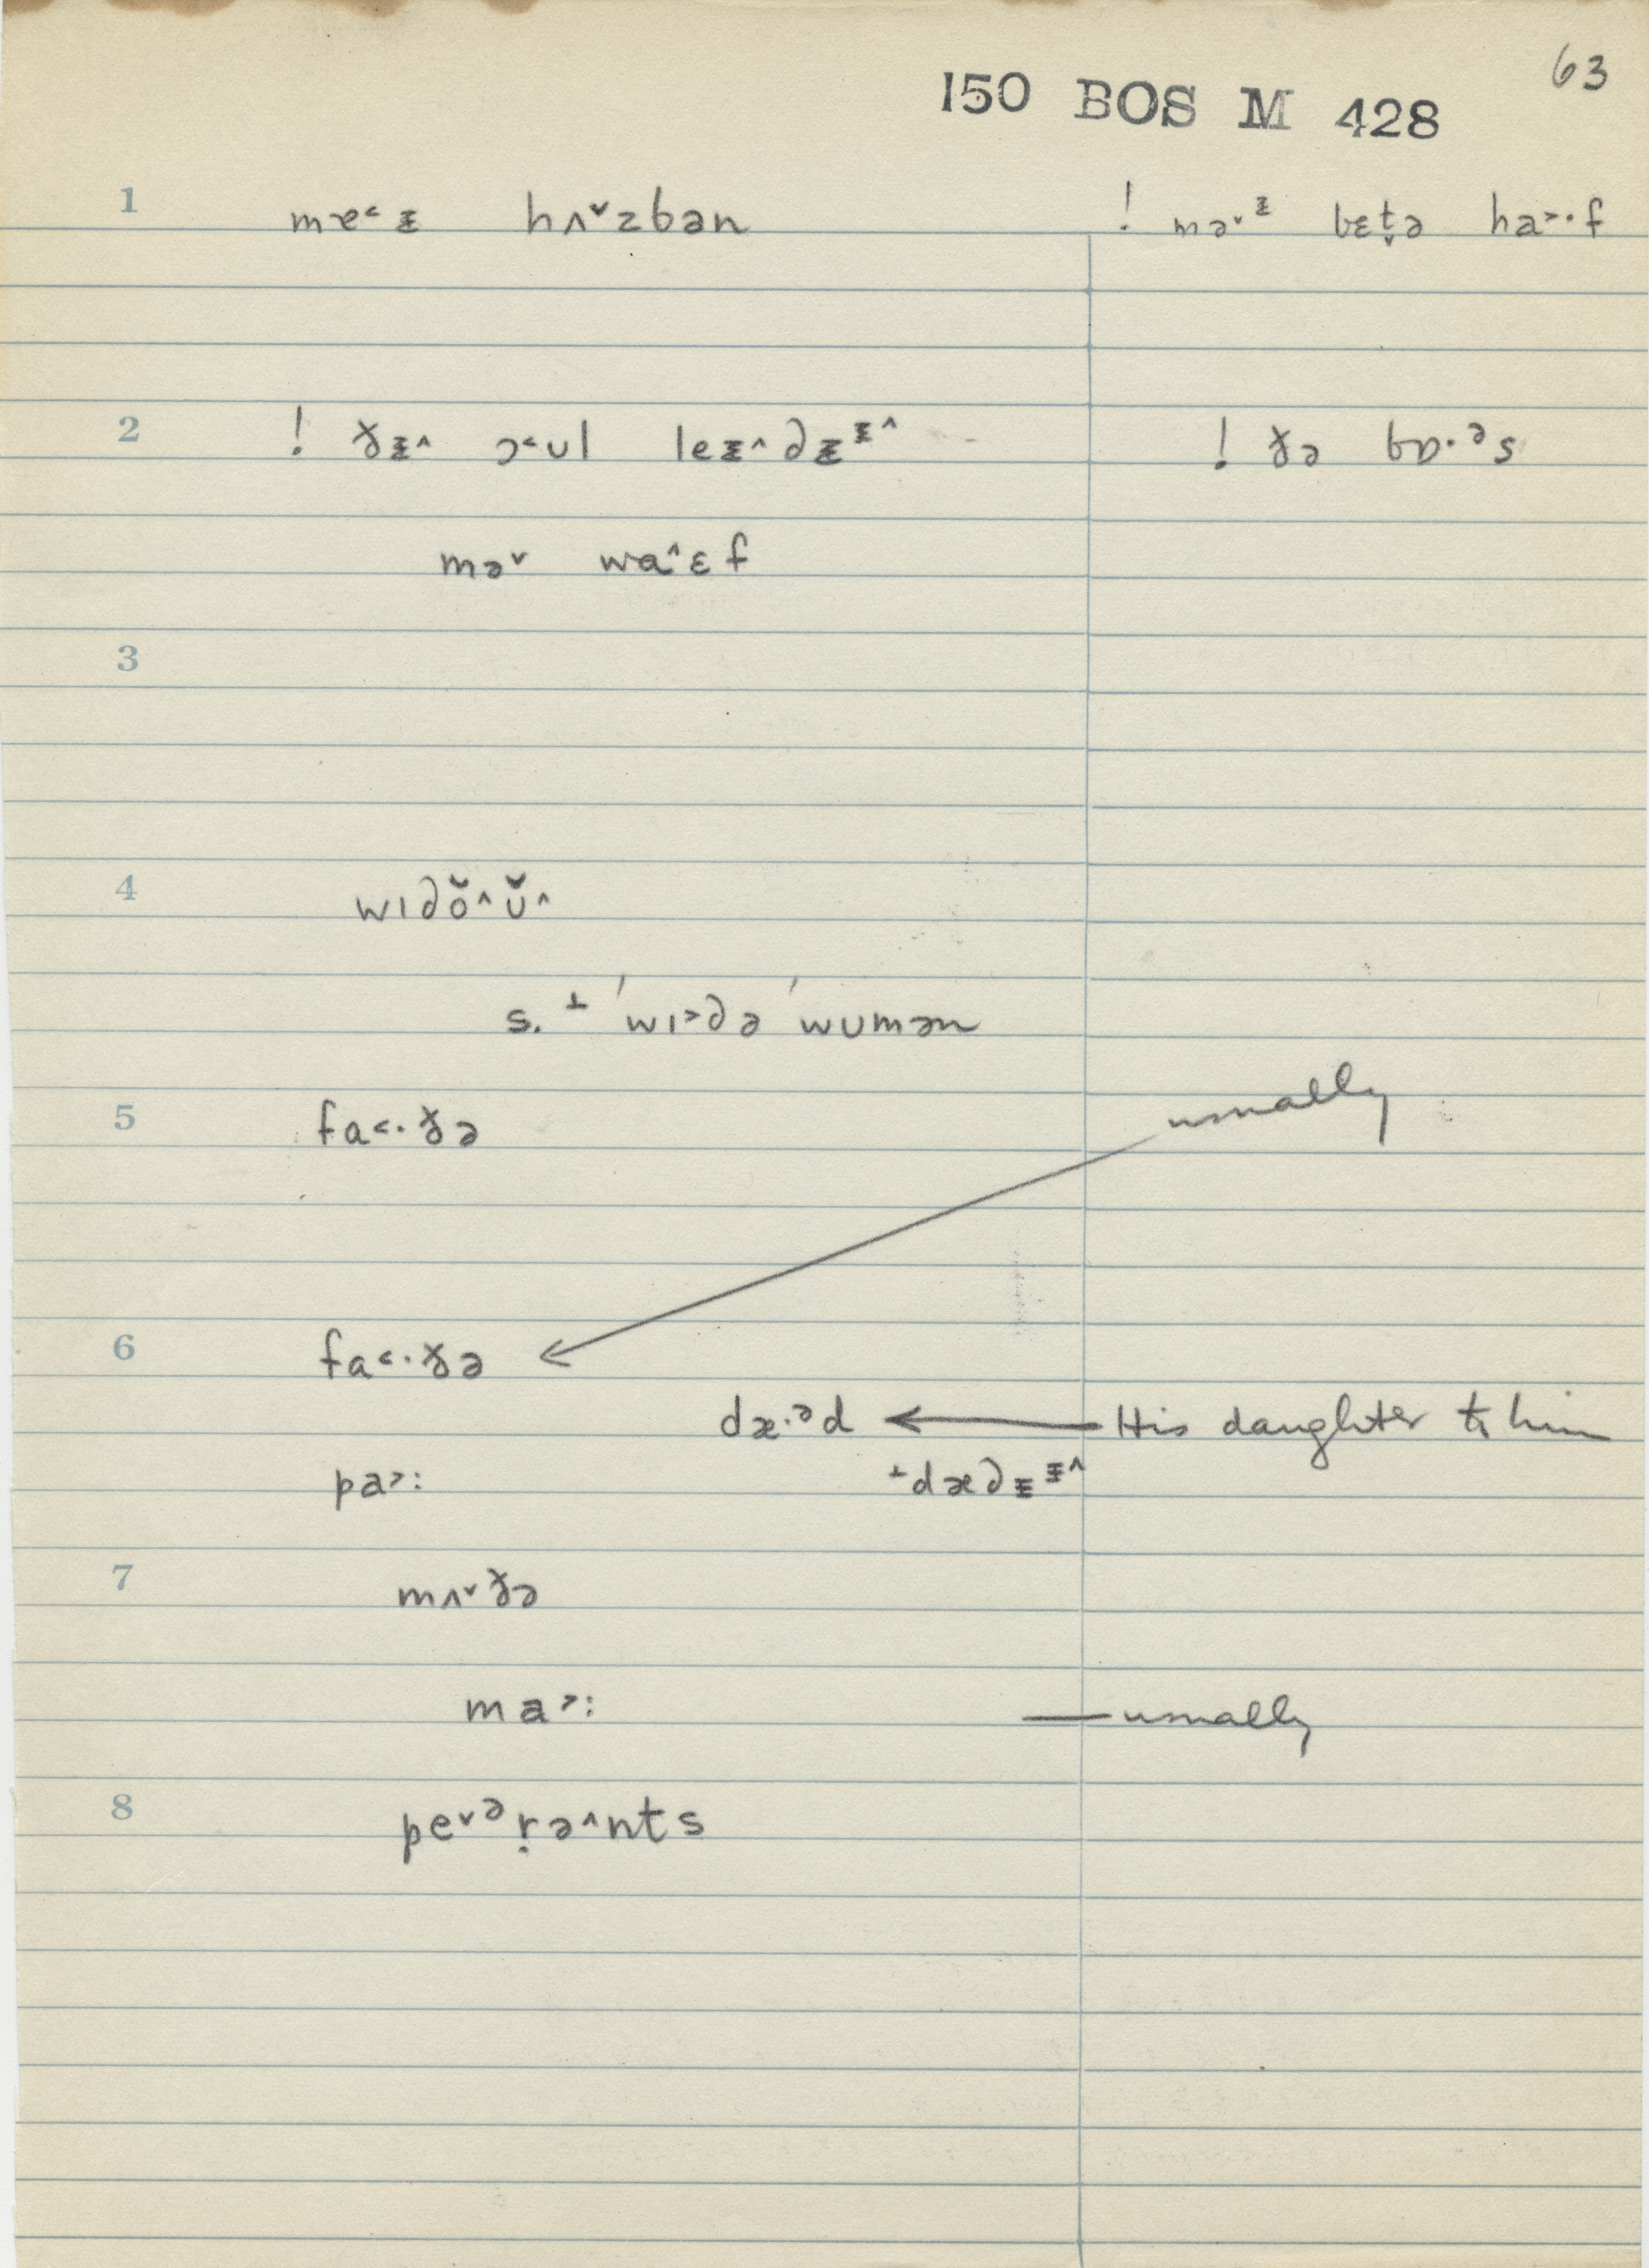 63
150 BOS M 428
1 mɐ˂ᵻ hʌ˅zbən ! mə˅ᵻ bɛt̬ə ha˃·f
2 ! ðᵻ˄ ɔ˂ʊl leᵻ˄∂ᵻᵻ˄ ! ðə bɒ·ᵊs
mə˅ wa˄ɛf
3
4 wɪ∂ŏ˄ʊ̆˄
s. ⊥ ˈwɪ˃∂ə ˈwʊmən
5 fa˂·ðə usually
6 fa˂·ðə
dæ·ᵊd ← His daughter to him
pa˃: ⊥dæ∂ᵻᵻ˄
7 mʌ˅ðə
ma˃: — usually
8 pe˅ᵊṛə˄nts